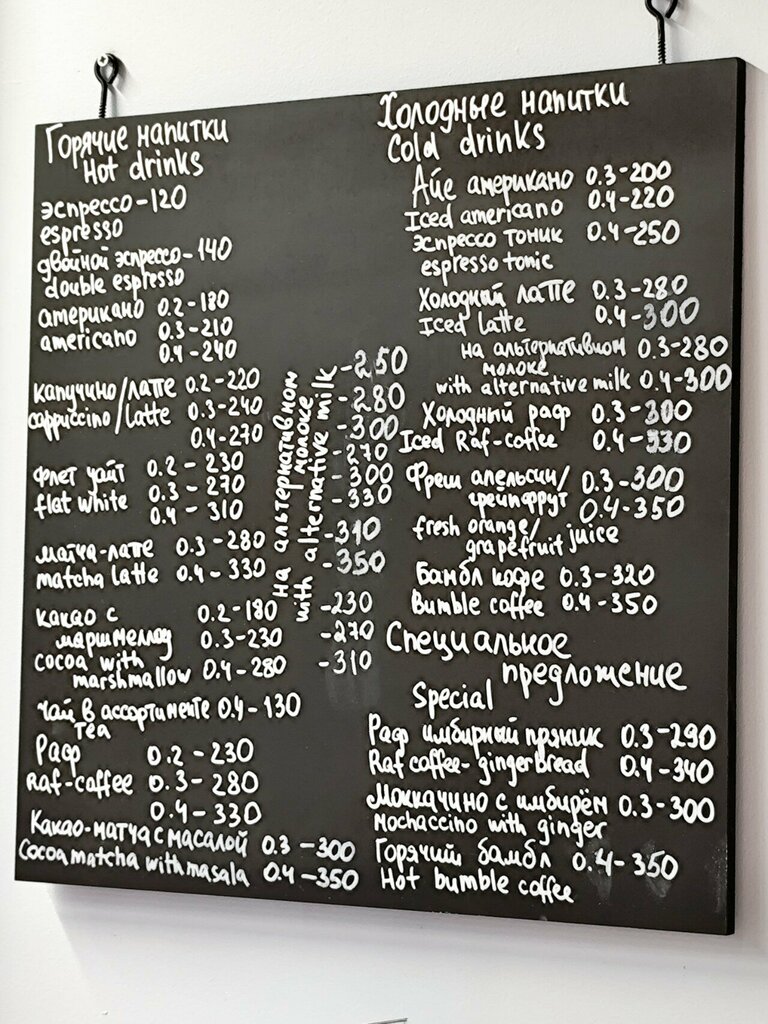 Горячие напитки
Hot drinks
эспрессо-120
espresso
двойной эспрессо-140
double espresso
американо 0.2-180
americano 0.3-210
0.4-240
капучино/латте 0.2-220
cappuccino/latte 0.3-240
0.4-270
флет уайт 0.2-230
flat white 0.3-270
0.4-310
матча-латте 0.3-280
matcha latte 0.4-330
какао с 0.2-180
маршмеллоу 0.3-230
cocoa with
marshmallow 0.4-280
чай в ассортименте 0.4-130
Tea
Раф 0.2-230
Raf-coffee 0.3-280
0.4-330
Какао-матча с масалой 0.3-300
Cocoa matcha with masala 0.4-350
на альтернативном
молоке
with alternative milk
-250
-280
-300
-270
-300
-330
-310
-350
-230
-270
-310
Холодные напитки
Cold drinks
Айс американо 0.3-200
Iced americano 0.4-220
эспрессо тоник 0.4-250
espresso tonic
Холодный латте 0.3-280
Iced latte 0.4-300
на альтернативном 0.3-280
молоке
with alternative milk 0.4-300
Холодный раф 0.3-300
Iced Raf-coffee 0.4-330
Фреш апельсин/ 0.3-300
грейпфрут 0.4-350
fresh orange/
grapefruit juice
Бамбл кофе 0.3-320
Bumble coffee 0.4-350
Специальное
предложение
Special
Раф имбирный пряник 0.3-290
Raf coffee-gingerbread 0.4-340
Моккачино с имбирём 0.3-300
Mochaccino with ginger
Горячий бамбл 0.4-350
Hot bumble coffee